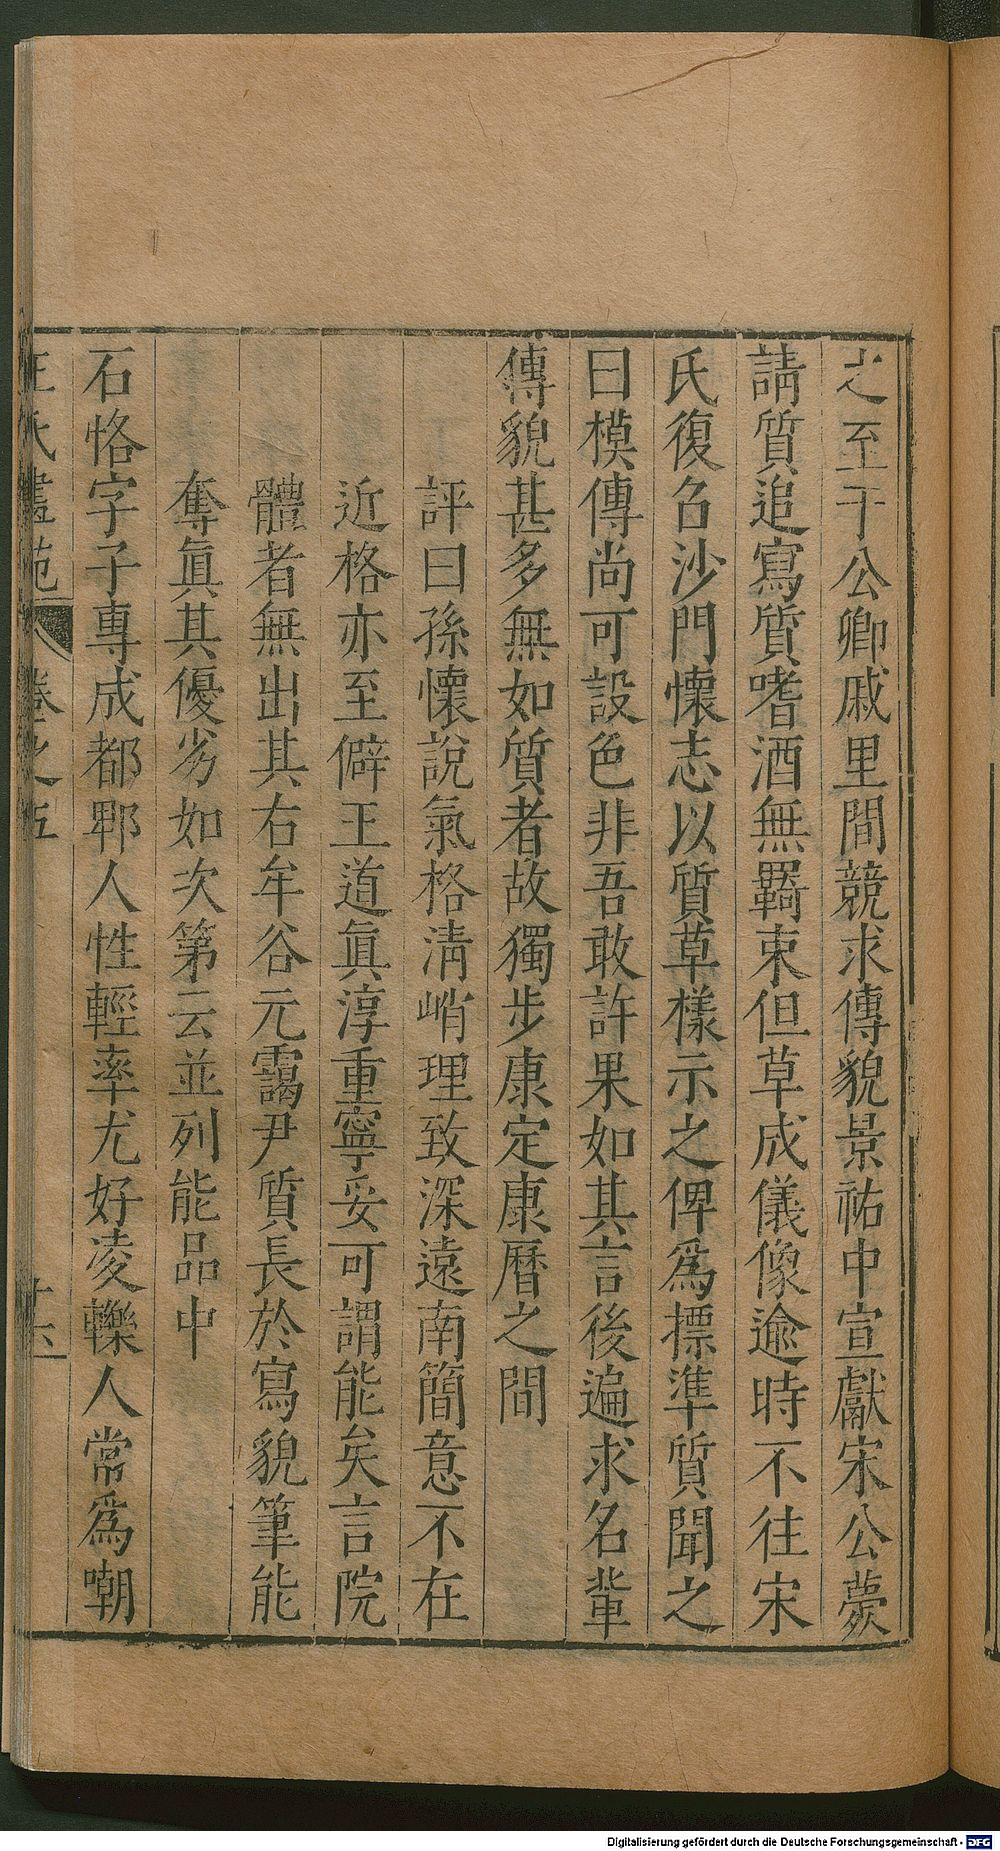 之至于公卿戚里間競求傳貌景祐中宣獻宋公薨
請質追寫質嗜酒無羈束但草成儀像逾時不往宋
氏復名沙門懷志以質草樣示之俾爲摽準質聞之
曰模傳尚可設色非吾敢許果如其言後遍求名輩
傳貌甚多無如質者故獨步康定康曆之間
評曰孫懷說氣格清峭理致深遠南簡意不在
近格亦至僻王道眞淳重寧妥可謂能矣言院
體者無出其右牟谷元靄尹質長於寫貌筆能
奪眞其優劣如次第云並列能品中
石恪字子專成都郫人性輕率尤好凌轢人常爲嘲
王氏畫苑 卷之五 十六
Digitalisierung gefördert durch die Deutsche Forschungsgemeinschaft - DFG